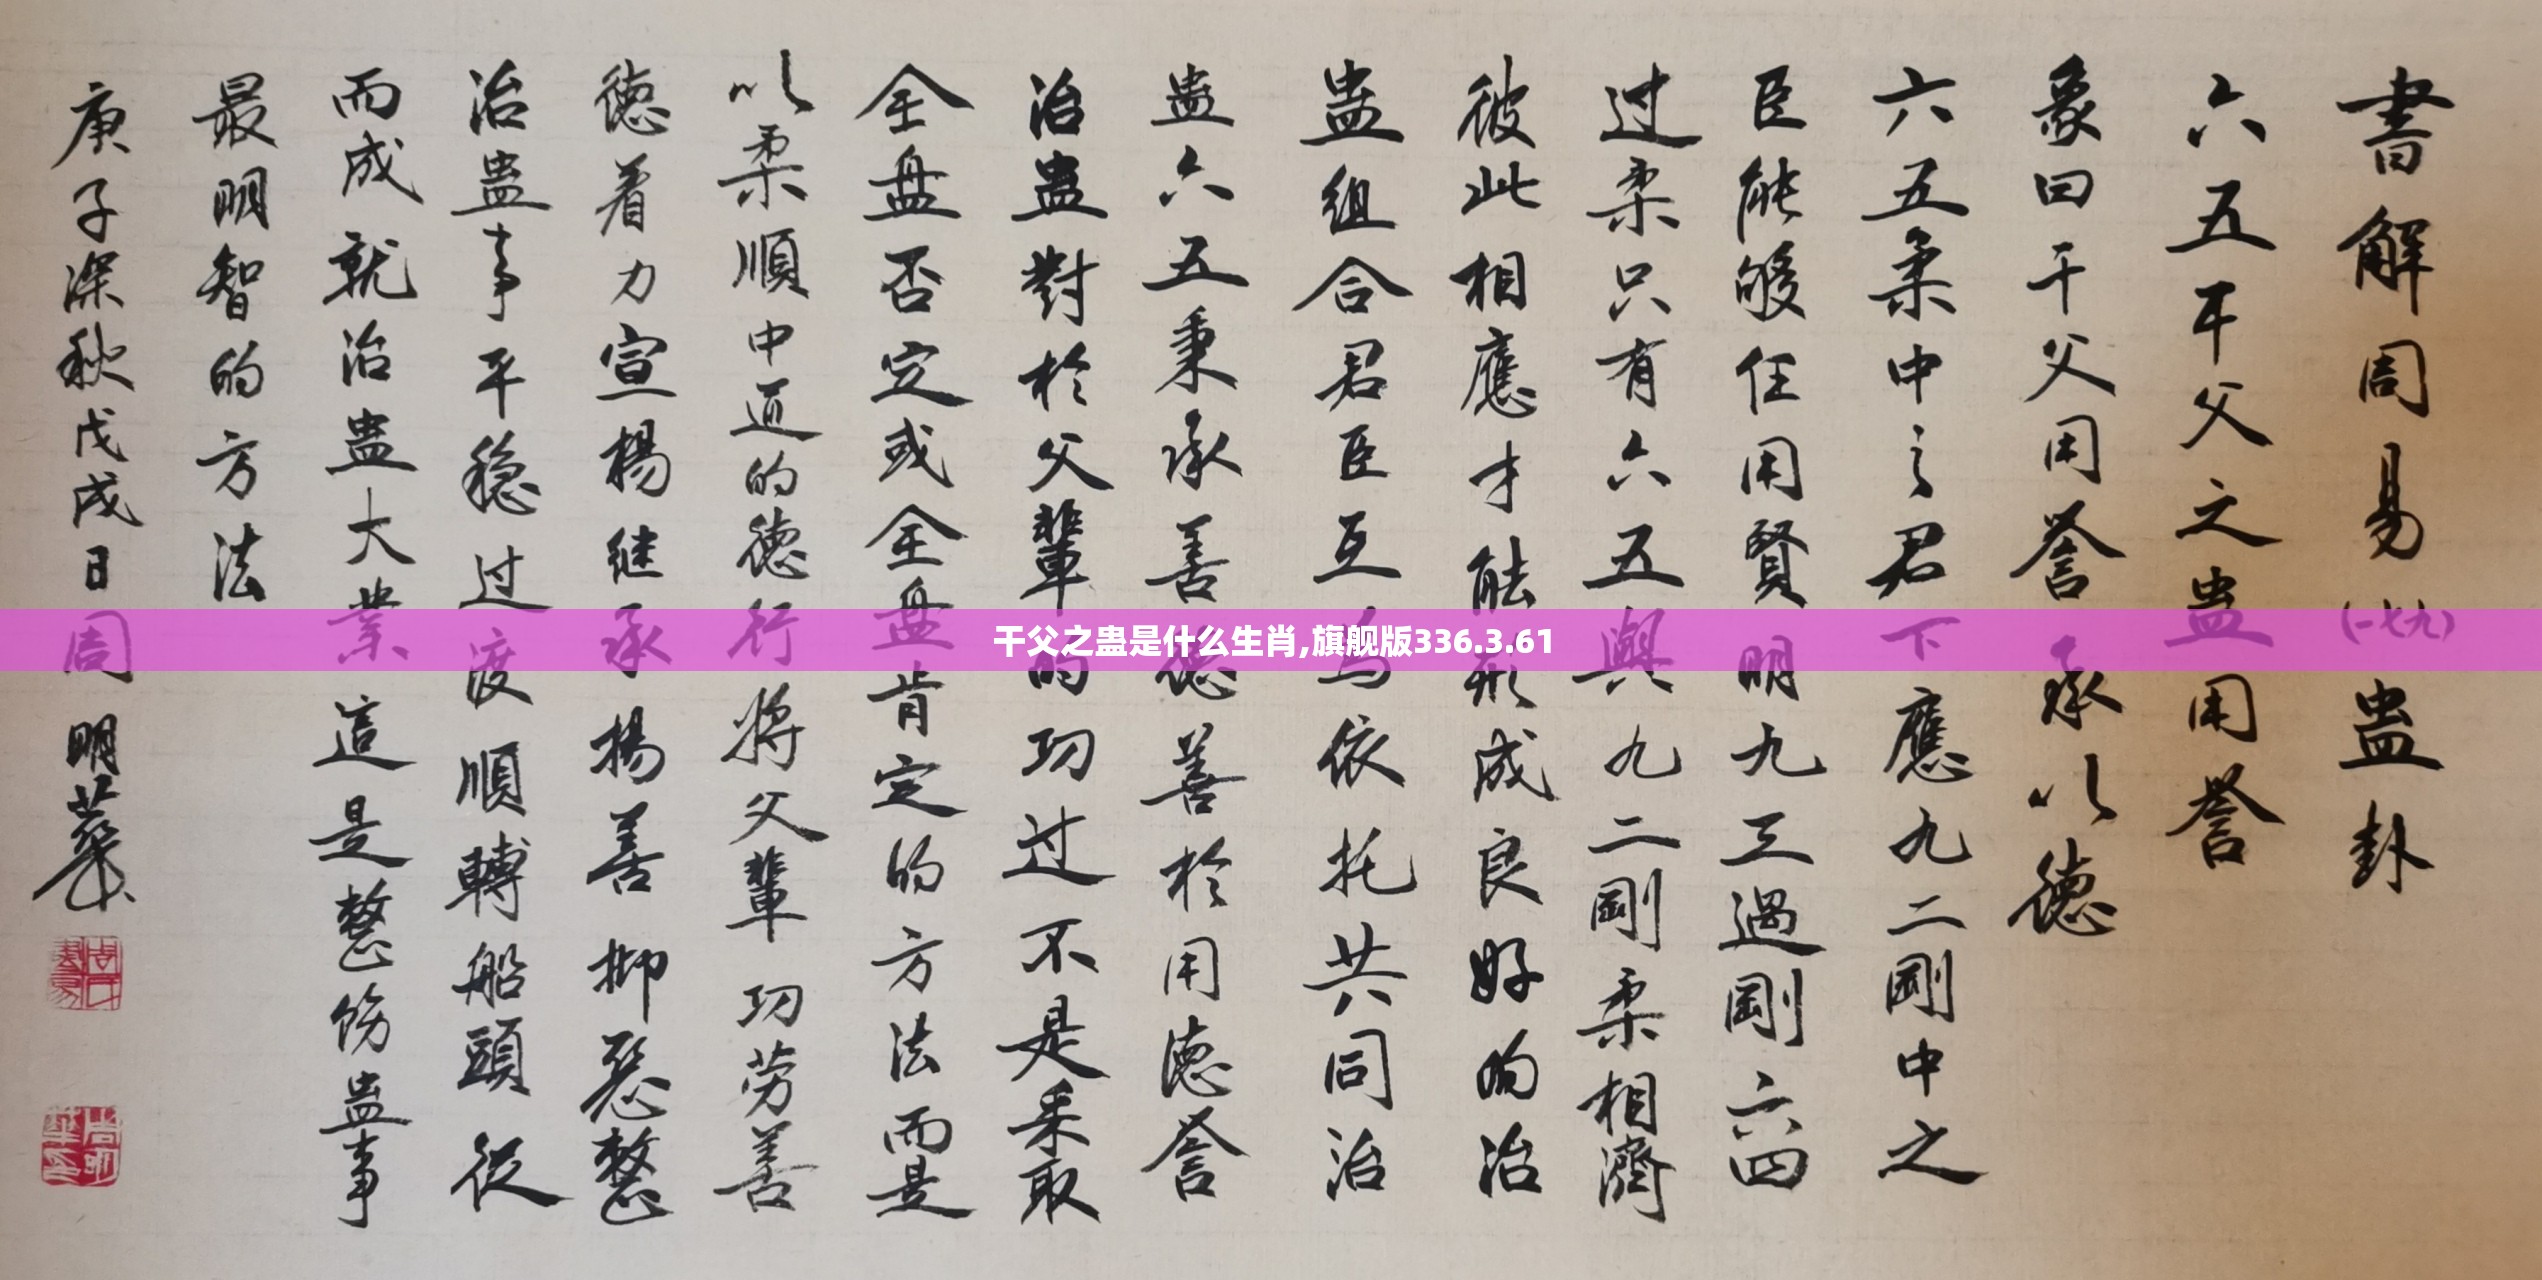 書解周易(一七九)蛊卦
六五干父之蛊用誉
象曰干父用誉承以德
六五柔中之君下應九二剛中之
臣能够任用賢明九三過剛六四
过柔只有六五與九二剛柔相濟
彼此相應才能形成良好的治
蛊组合君臣互為依托共同治
蛊六五秉承善德善於用德誉
治蛊對於父輩的功过不是采取
全盘否定或全盘肯定的方法而是
以柔順中道的德行将父輩功劳善
德着力宣楊继承揚善抑恶整
治蛊事平稳过渡順轉船頭從
而成就治蛊大業這是整饬蛊事
最明智的方法
庚子深秋戊戌日周明華
干父之蛊是什么生肖,旗舰版336.3.61